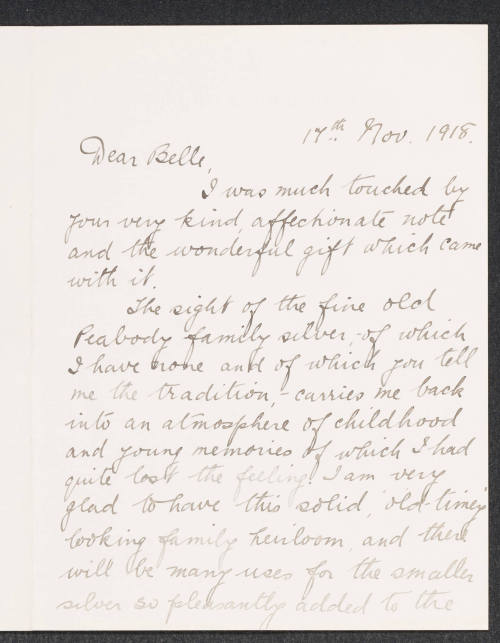 17th Nov. 1918.
Dear Belle,
I was much touched by
your very kind, affectionate note
and the wonderful gift which came
with it.
The sight of the fine old
Peabody family silver, - of which
I have none and of which you tell
me the tradition, - carries me back
into an atmosphere of childhood
and young memories of which I had
quite lost the feeling. I am very
glad to have this solid, old-timey
looking family heirloom, and there
will be many uses for the smaller
silver so pleasantly added to the